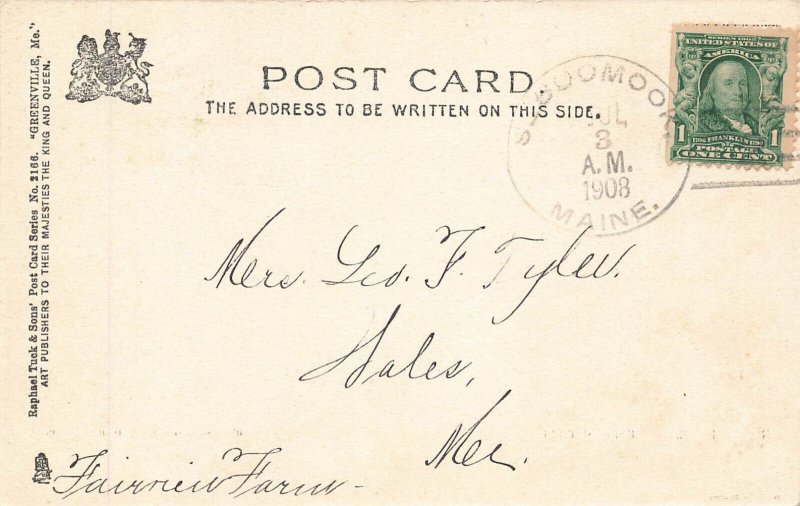 POST CARD.
THE ADDRESS TO BE WRITTEN ON THIS SIDE.
Raphael Tuck & Sons' Post Card Series No. 2166. "GREENVILLE, Me."
ART PUBLISHERS TO THEIR MAJESTIES THE KING AND QUEEN.
SEBOOMOOK,
JUL
3
A.M.
1908
MAINE.
SERIES 1902
UNITED STATES OF
AMERICA
1 FRANKLIN 1
POSTAGE
ONE CENT
Mrs. Geo. F. Tyler.
Wales,
Me.
Fairview Farm